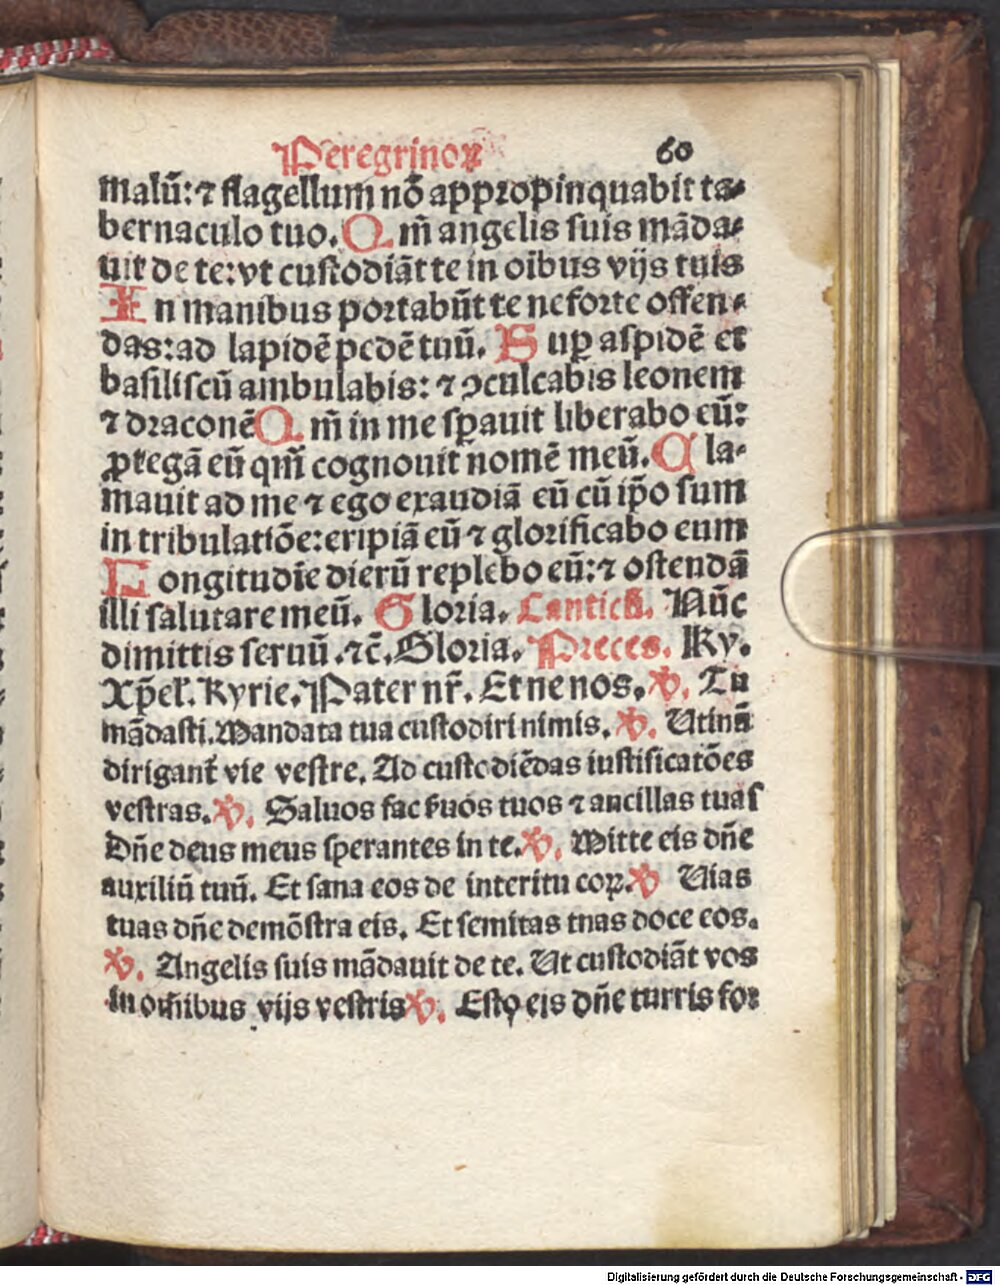 Peregrinoꝝ 60
malū: ⁊ flagellum nō appropinquabit ta⸗
bernaculo tuo. Qm̄ angelis suis māda⸗
uit de te: vt custodiāt te in oībus vijs tuis
In manibus portabūt te ne forte offen⸗
das: ad lapidē pedē tuū. Suꝑ aspidē et
basiliscū ambulabis: ⁊ ꝯculcabis leonem
⁊ draconē Qm̄ in me sꝑauit liberabo eū:
ꝓtegā eū qm̄ cognouit nomē meū. Cla⸗
mauit ad me ⁊ ego exaudiā eū cū ip̄o sum
in tribulatiōe: eripiā eū ⁊ glorificabo eum
Longitudīe dierū replebo eū: ⁊ ostendā
illi salutare meū. Gloria. Canticū. Nūc
dimittis seruū .⁊c̄. Gloria. Preces. Ky.
Xp̄eł. Kyrie. Pater nr̄. Et ne nos. ℣. Tu
mādasti. Mandata tua custodiri nimis. ℣. Utinā
dirigant̄ vie vestre. Ad custodiēdas iustificatōes
vestras. ℣. Saluos fac ẜuos tuos ⁊ ancillas tuas
Dn̄e deus meus sperantes in te. ℣. Mitte eis dn̄e
auxiliū tuū. Et sana eos de interitu eoꝝ. ℣ Uias
tuas dn̄e demōstra eis. Et semitas tuas doce eos.
℣. Angelis suis mādauit de te. Ut custodiāt vos
in om̄ibus vijs vestris ℣. Esto eis dn̄e turris for
Digitalisierung gefördert durch die Deutsche Forschungsgemeinschaft - DFG